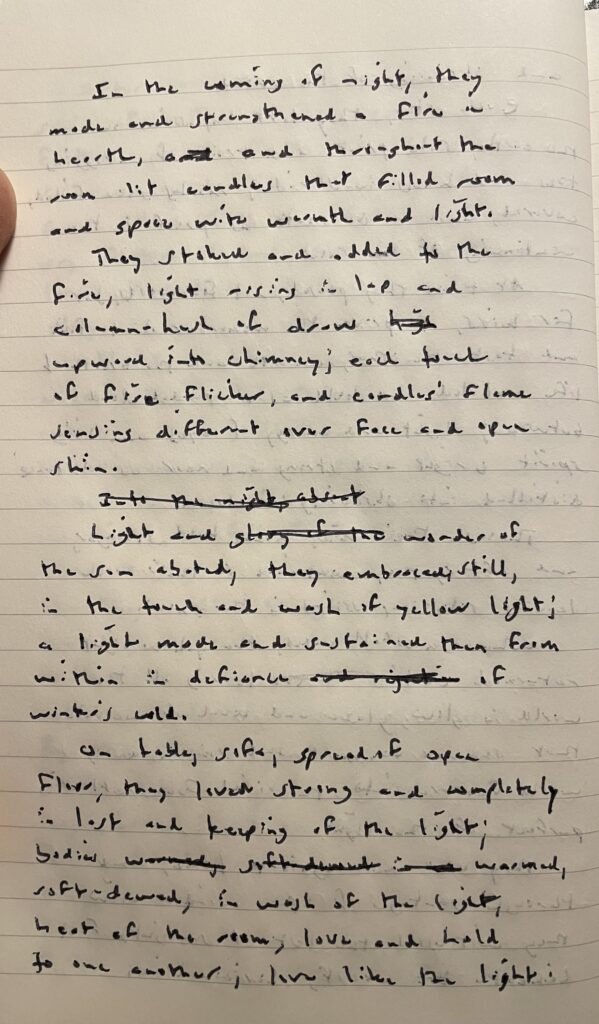 In the coming of night, they
made and strengthened a fire in
hearth, and and throughout the
room lit candles that filled room
and space with warmth and light.
They stoked and added to the
fire, light rising in lap and
column-hush of draw
upward into chimney; each touch
of fire flicker, and candles' flame
sensing different over face and open
skin.
Into the night, absent
Light and glory of the wonder of
the sun abated, they embraced, still,
in the touch and wash of yellow light;
a light made and sustained then from
within in defiance and rejection of
winter's cold.
On table, sofa, spread of open
floor, they loved strong and completely
in last and keeping of the light;
bodies warmed, soft-dewed in warmed,
soft-dewed, in wash of the light,
heat of the room, love and hold
to one another; love like the light: